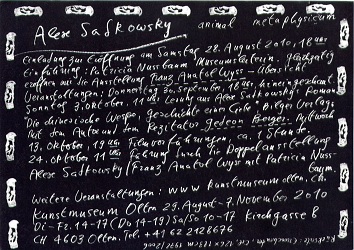 Alex Sadkowsky animal metaphysicum
Einladung zur Eröffnung am Samstag 28. August 2010, 18 Uhr
Einführung: Patricia Nussbaum Museumsleiterin. Gleichzeitig
eröffnen wir die Ausstellung Franz Anatol Wyss – Übersicht
Veranstaltungen: Donnerstag 30. September, 18 Uhr,
Sonntag 3. Oktober. 11 Uhr Lesung aus Alex Sadkowskys Roman
Die chinesische Wespe. Geschichte einer Liebe. Bilger Verlag.
Mit dem Autor und dem Rezitator Gedeon Burger. Mittwoch
13. Oktober, 19 Uhr Filmvorführungen ca. 1 Stunde.
24. Oktober 11 Uhr Führung durch die Doppelausstellung
Alex Sadkowsky / Franz Anatol Wyss mit Patricia Nuss-
baum.
Weitere Veranstaltungen: www.kunstmuseumolten.ch.
Kunstmuseum Olten 29. August - 7. November 2010
Di-Fr. 14-17 (Do 14-19) Sa/So 10-17 Kirchgasse 8
CH 4603 Olten. Tel. +41 62 2128676